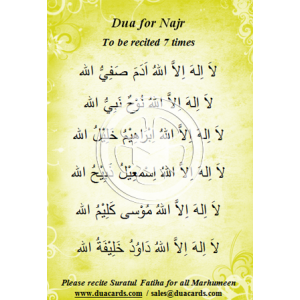 Dua for Najr
To be recited 7 times
لاَ اِلهَ اِلاَّ اللهُ اٰدَمَ صَفِيُّ الله
لاَ اِلهَ اِلاَّ اللهُ نُوْحٌ نَبِيُّ الله
لاَ اِلهَ اِلاَّ اللهُ اِبْرَاهِيْمُ خَلِيْلُ الله
لاَ اِلهَ اِلاَّ اللهُ اِسْمٰعِيْلُ ذَبِيْحُ الله
لاَ اِلهَ اِلاَّ اللهُ مُوْسى كَلِيْمُ الله
لاَ اِلهَ اِلاَّ اللهُ دَاوُدُ خَلِيْفَةُ الله
Please recite Suratul Fatiha for all Marhumeen
www.duacards.com / sales@duacards.com